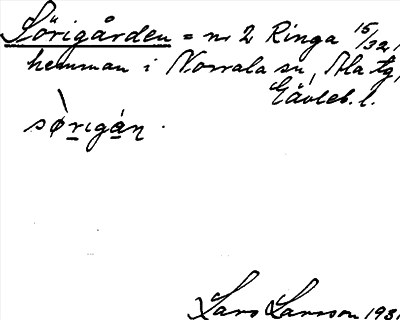 Sörigården = nr 2 Ringa 15/32,
hemman i Norrala sn, Ala tg,
Gävleb. l.
sø̀rigán.
Lars Larsson 193